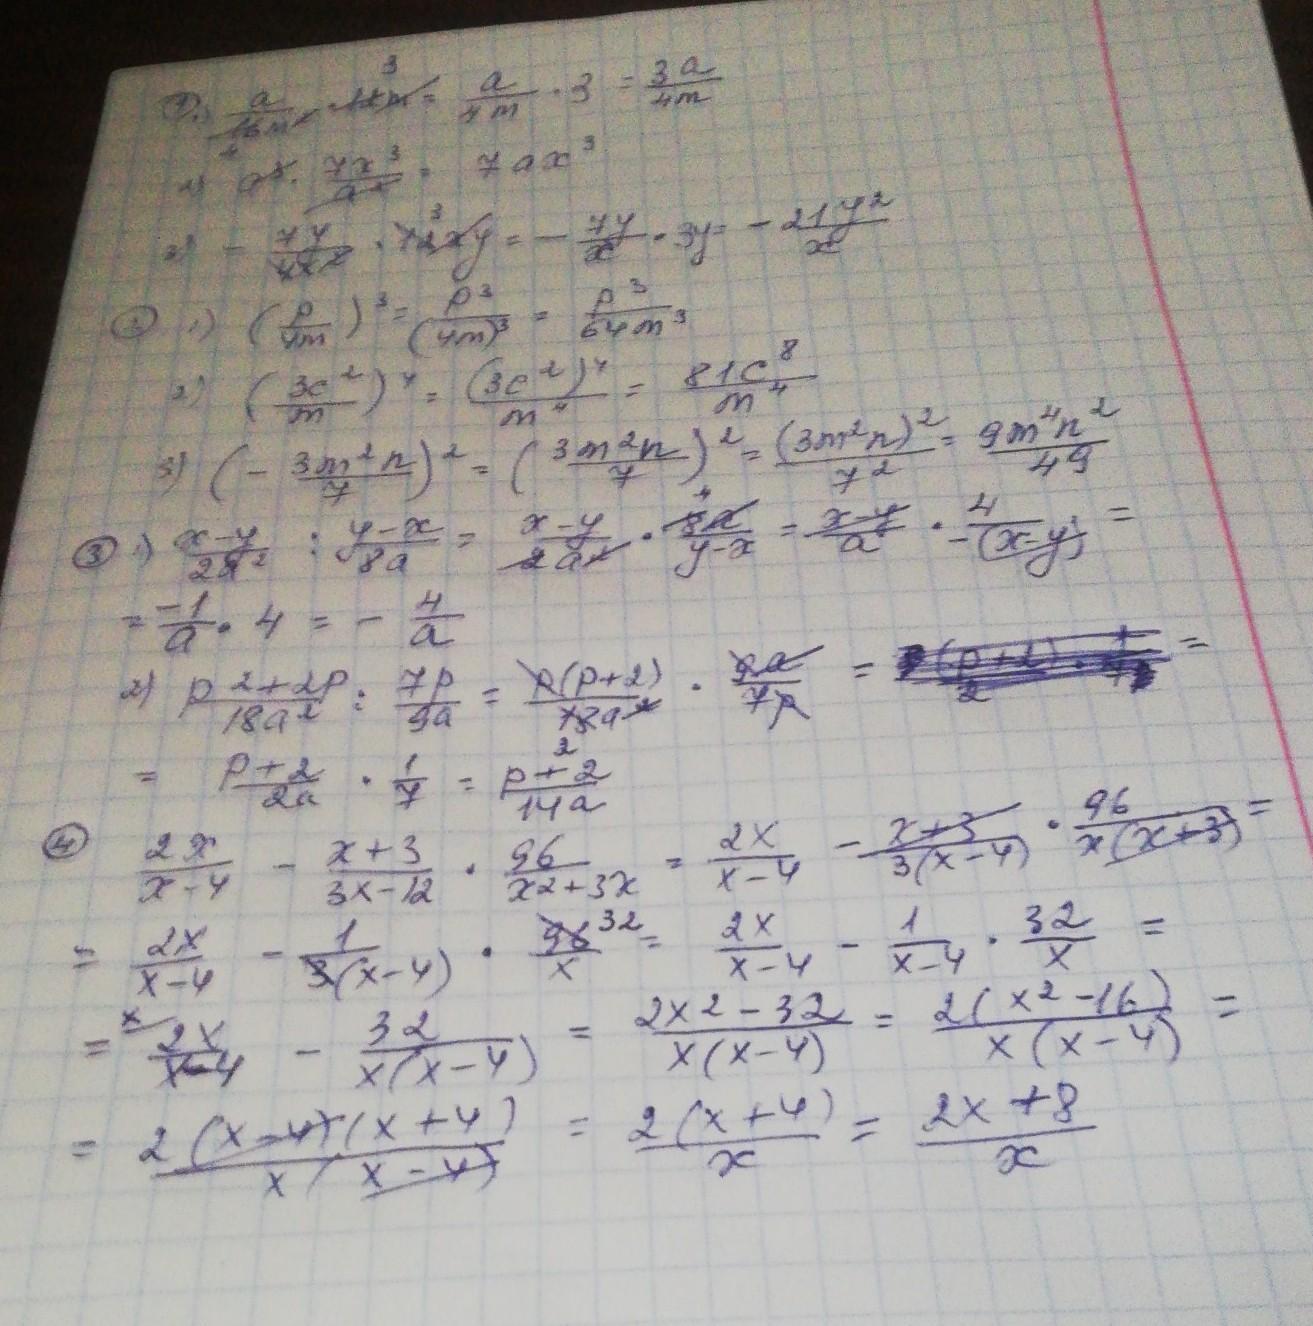 ① 1) a/16m² · 12m = a/4m · 3 = 3a/4m
2) a³ · 7x³/a² = 7ax³
3) - 7y/4x² · 12xy = - 7y/x · 3y = - 21y²/x
② 1) (p/4m)³ = p³/(4m)³ = p³/64m³
2) (3c²/m)⁴ = (3c²)⁴/m⁴ = 81c⁸/m⁴
3) (- 3m²n/7)² = (3m²n/7)² = (3m²n)²/7² = 9m⁴n²/49
③ 1) x-y/2a² : y-x/8a = x-y/2a² · 8a/y-x = x-y/a · 4/-(x-y) =
= -1/a · 4 = - 4/a
2) p2+2p/18a² : 7p/9a = p(p+2)/18a² · 9a/7p = =
= p+2/2a · 1/7 = p+2/14a
④ 2x/x-4 - x+3/3x-12 · 96/x2+3x = 2x/x-4 - x+3/3(x-4) · 96/x(x+3) =
= 2x/x-4 - 1/3(x-4) · 96 32/x = 2x/x-4 - 1/x-4 · 32/x =
= x 2x/x-4 - 32/x(x-4) = 2x2-32/x(x-4) = 2(x²-16)/x(x-4) =
= 2(x-4)(x+4)/x(x-4) = 2(x+4)/x = 2x+8/x